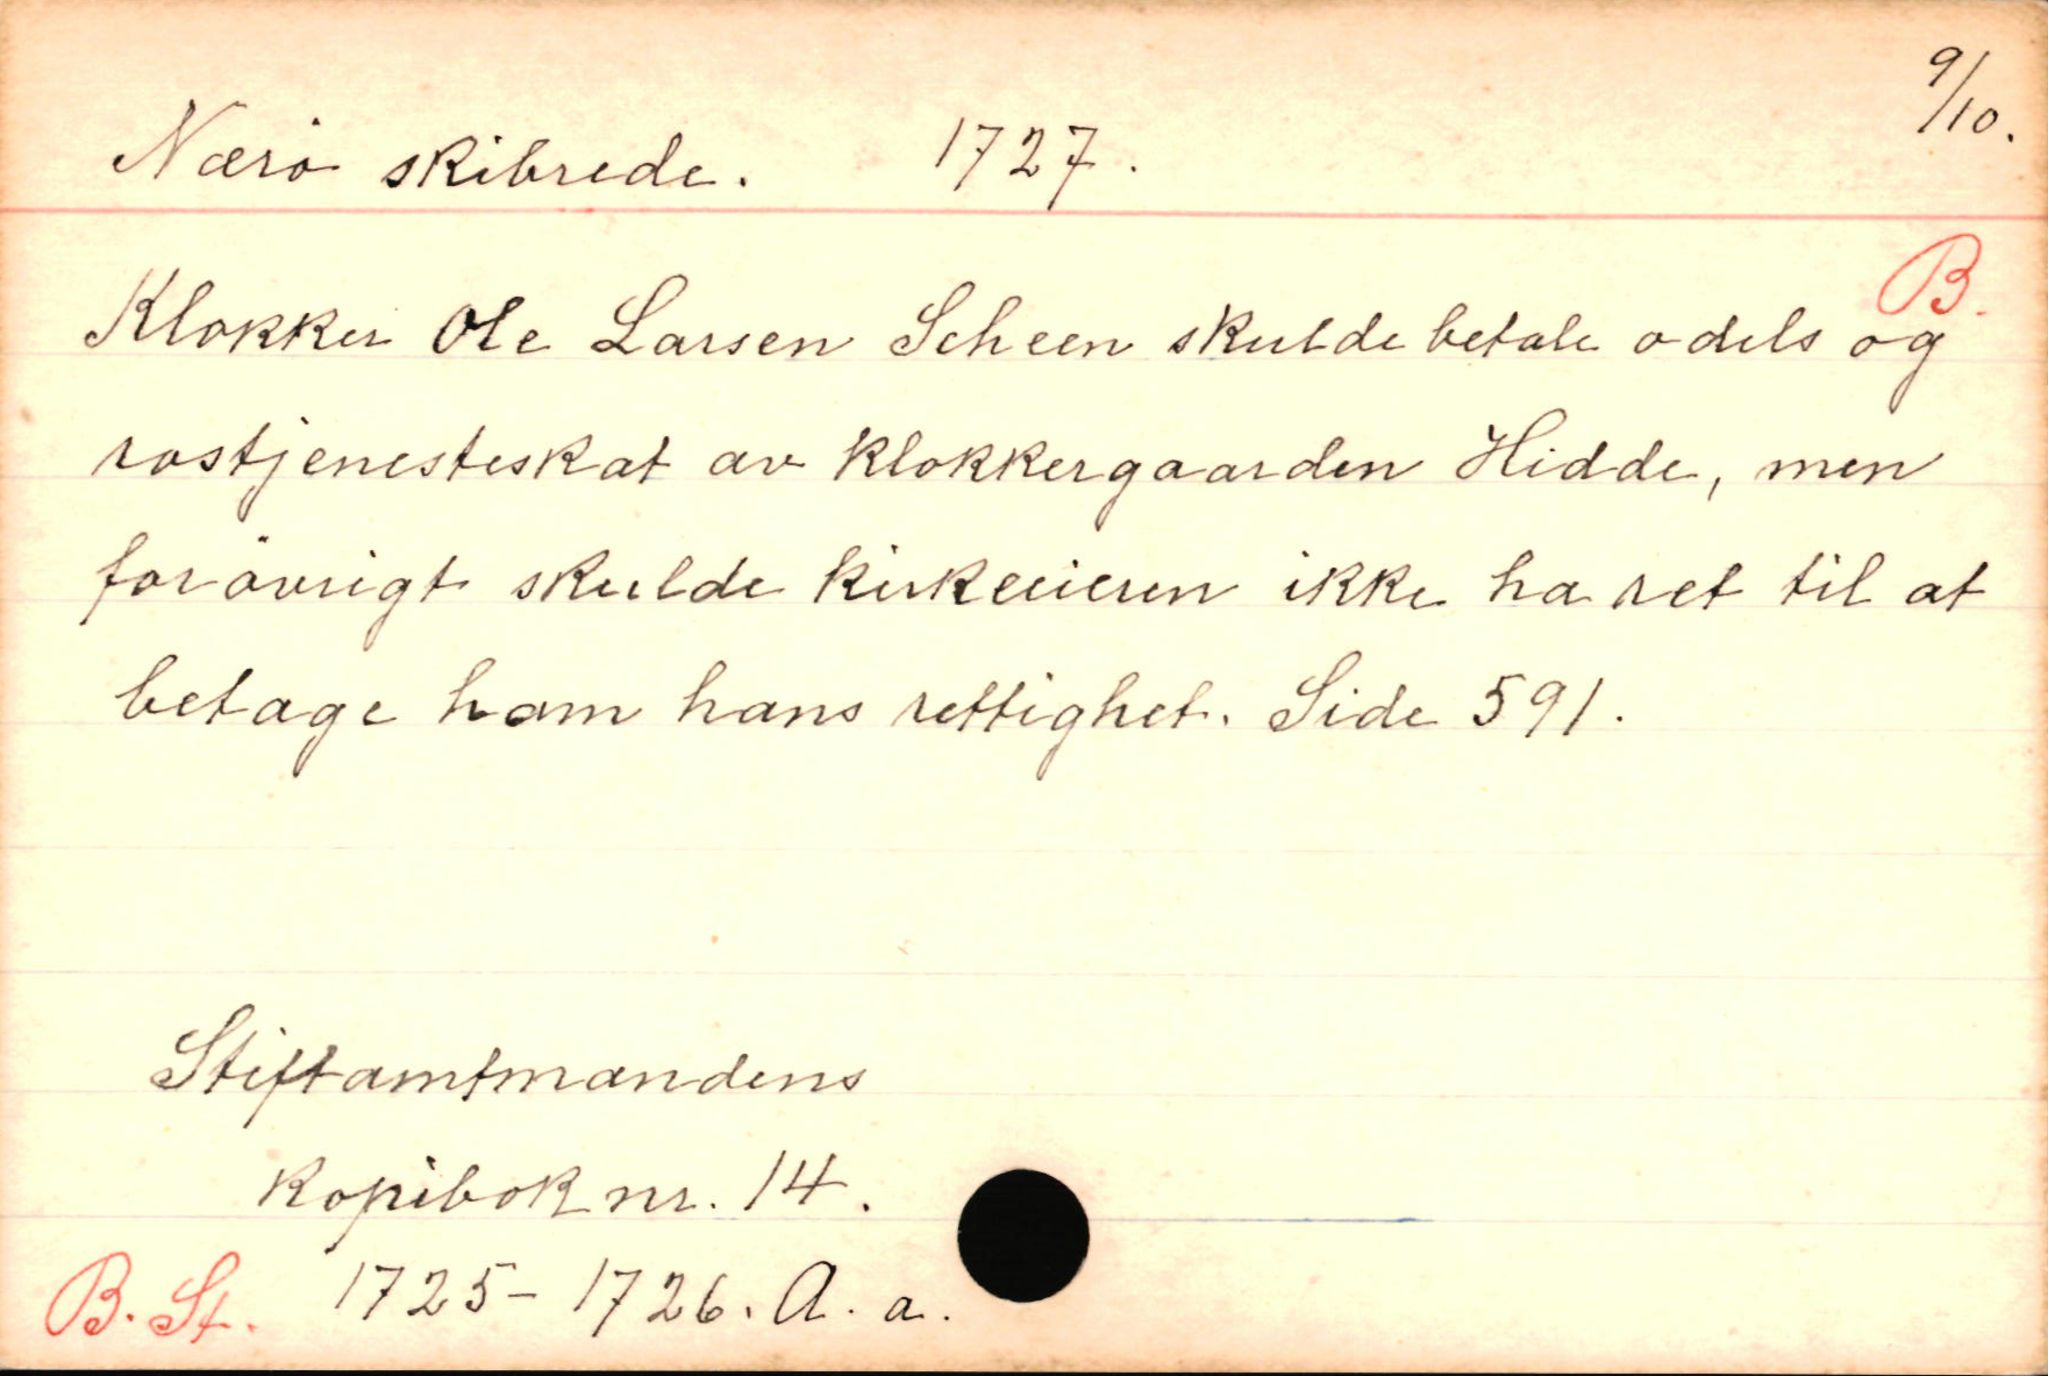 9/10.
Nærö skibrede. 1727.
B.
Klokker Ole Larsen Scheen skulde betale odels og
rostjenesteskat av klokkergaarden Hidde, men
forövrigt skulde kirkeeieren ikke ha ret til at
betage ham hans rettighet. Side 591.
Stiftamtmandens
kopibok nr. 14.
B. St. 1725-1726. A. a.